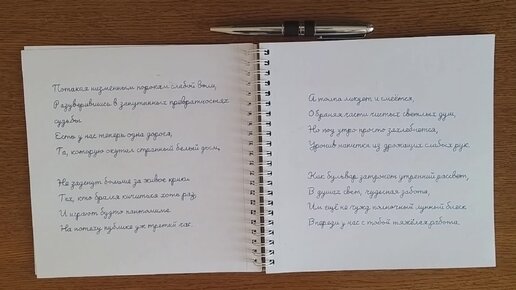 Потакая низменным порокам слабой воли,
Разуверившись в запутанных превратностях
судьбы
Есть у нас теперь одна дорога,
Та, которую окутал странный белый дом,
Не заденут больше за живое крики
Тех, кто брался кичиться хоть раз,
И играют будто пантомиме
На потеху публике уж третий час.
А толпа ликует и смеётся,
Обрывая части чистых светлых дум,
Но под утро просто захлебнётся,
Уронив напиток из дрожащих слабых рук.
Как бульвар затронет утренний рассвет,
В душах свет, чудесная забота,
Им ещё не чужд полночный лунный блеск
Впереди у нас с тобой тяжёлая работа.